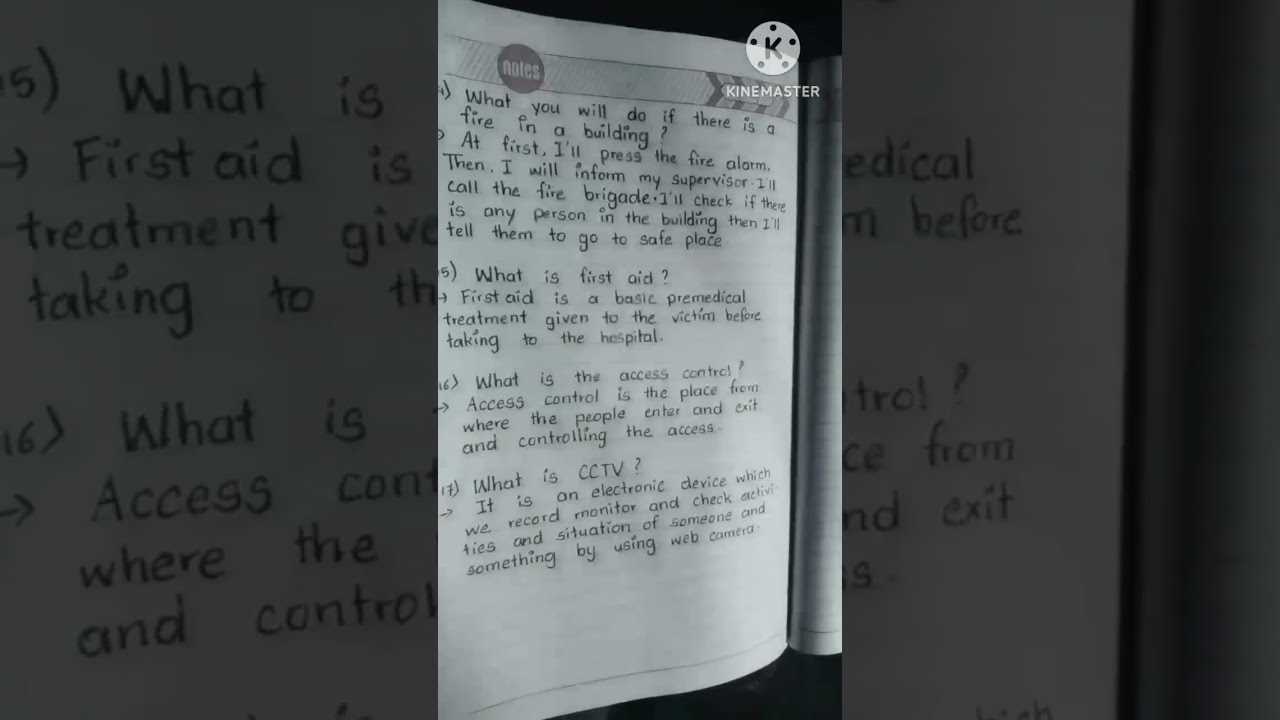 notes
KINEMASTER
4) What you will do if there is a
fire in a building?
At first, I'll press the fire alarm.
Then, I will inform my supervisor. I'll
call the fire brigade. I'll check if there
is any person in the building then I'll
tell them to go to safe place.
5) What is first aid?
→ First aid is a basic premedical
treatment given to the victim before
taking to the hospital.
16) What is the access control?
→ Access control is the place from
where the people enter and exit
and controlling the access.
17) What is CCTV?
→ It is an electronic device which
we record monitor and check activi-
ties and situation of someone and
something by using web camera.
15) What is
→ First aid is
treatment give
taking to th
16) What is
→ Access cont
where the
and control
edical
m before
trol?
ce from
nd exit
ss.
which